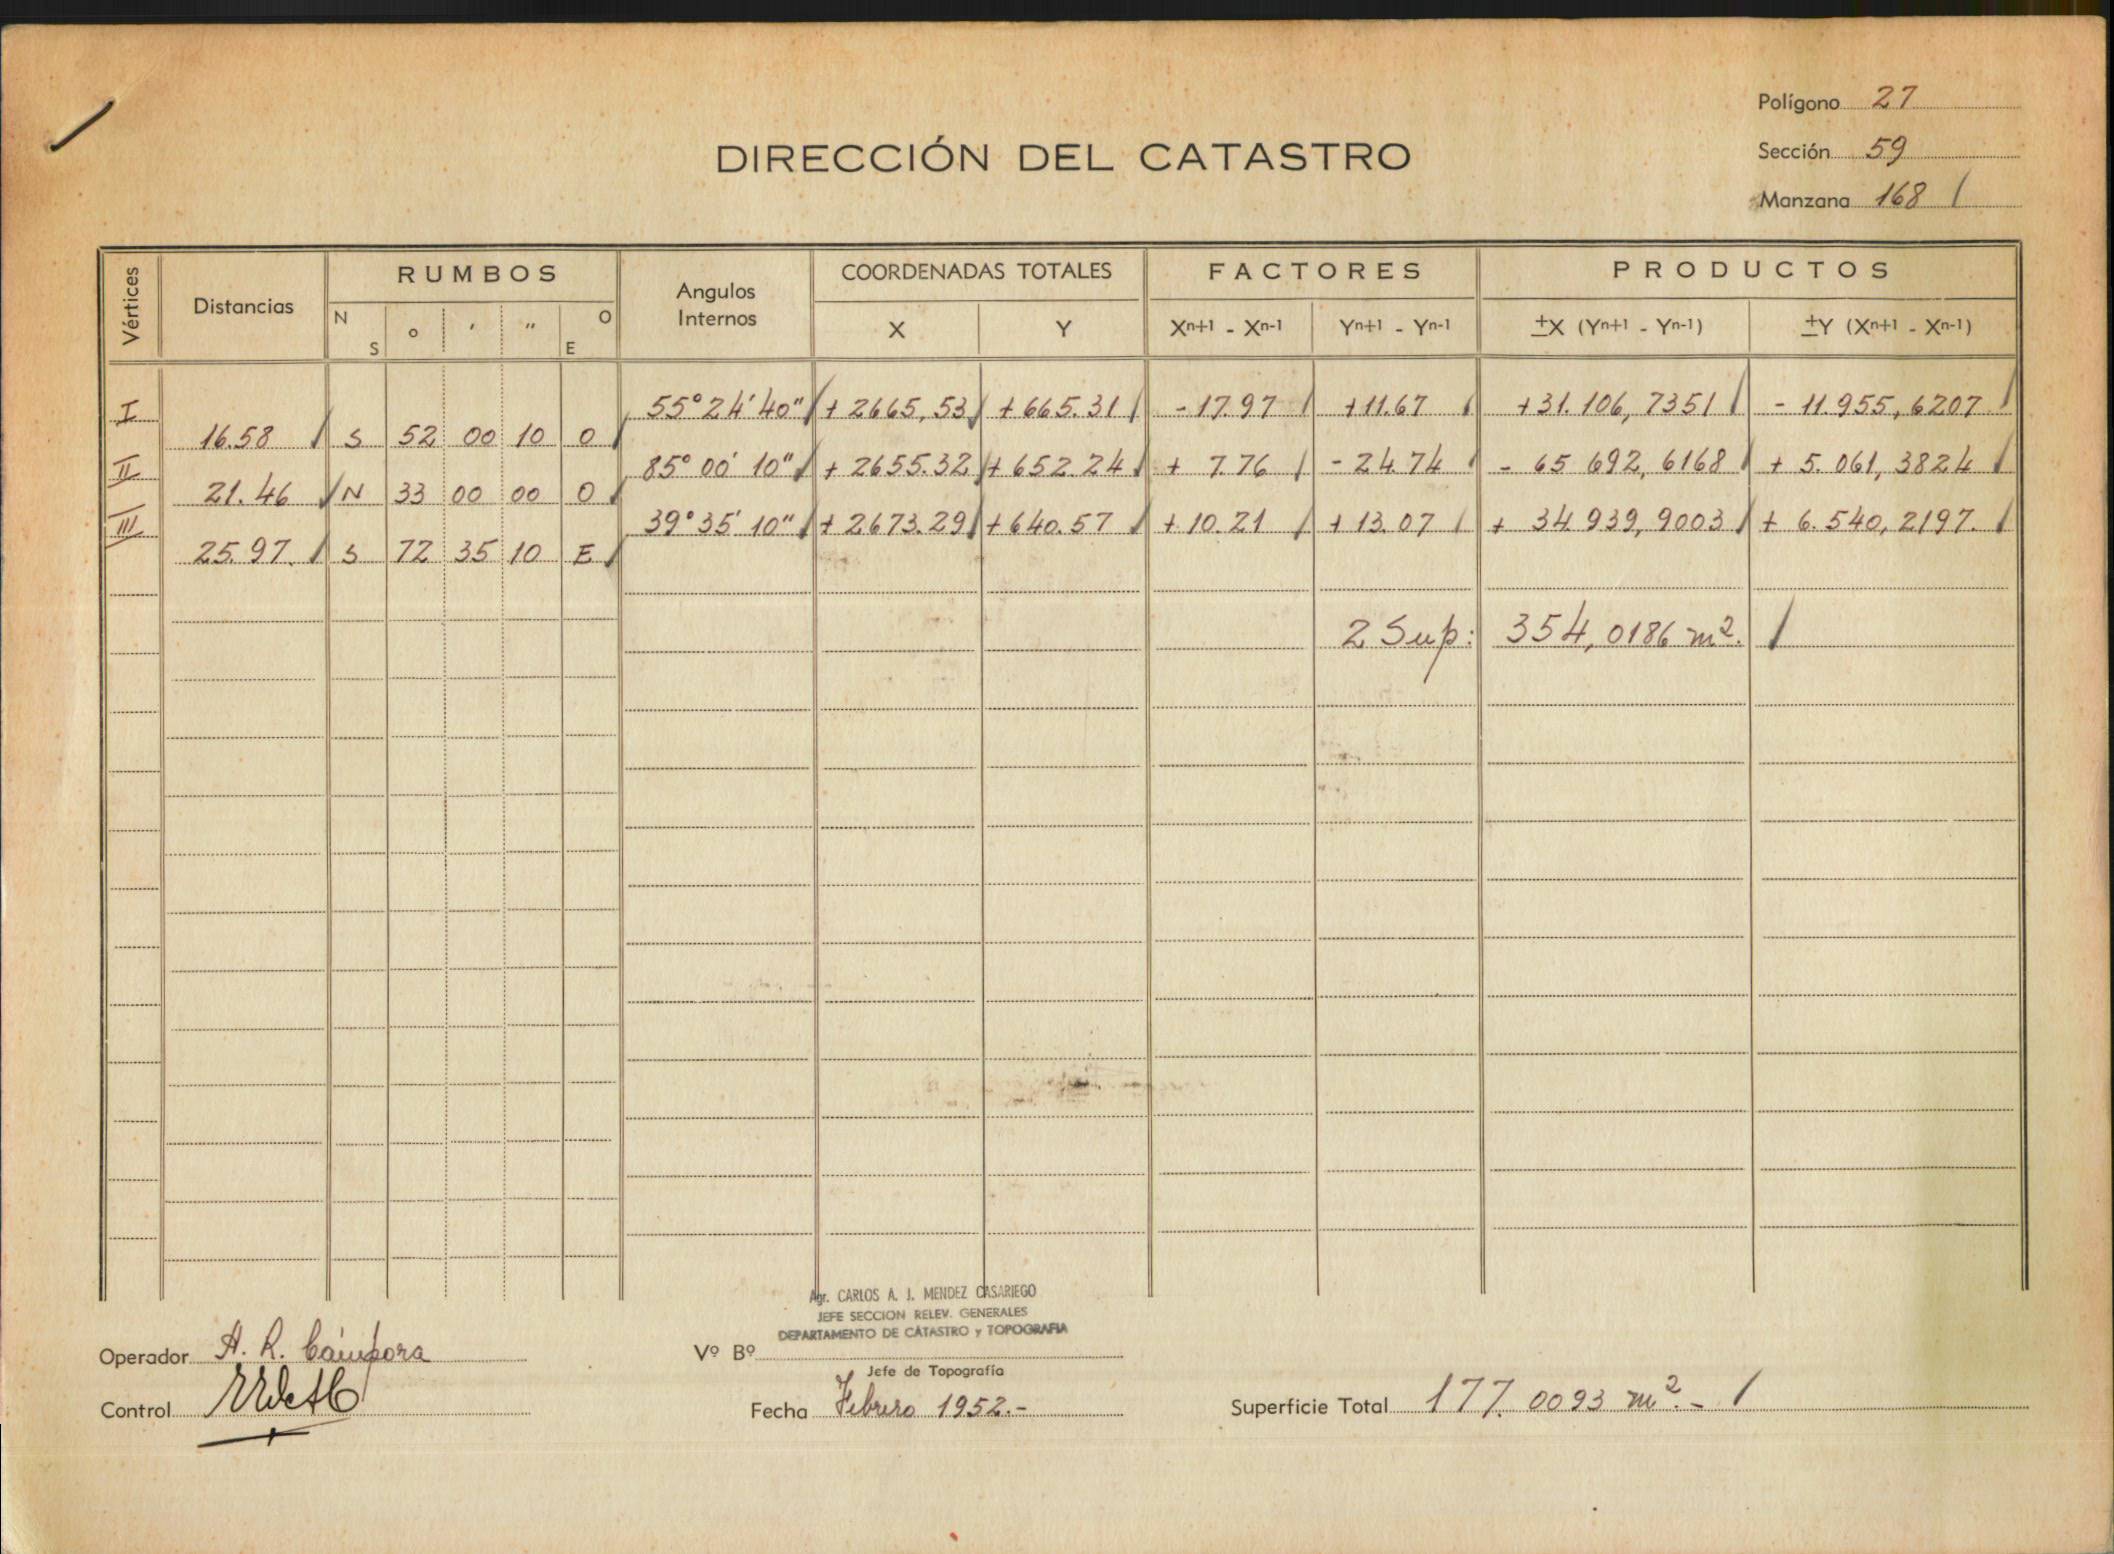 Polígono 27
DIRECCIÓN DEL CATASTRO
Sección 59
Manzana 168
Vértices Distancias RUMBOS Angulos Internos COORDENADAS TOTALES FACTORES PRODUCTOS
N S o ′ ″ O E X Y Xn+1 - Xn-1 Yn+1 - Yn-1 ±X (Yn+1 - Yn-1) ±Y (Xn+1 - Xn-1)
I 55° 24' 40" + 2665,53 + 665.31 - 17.97 + 11.67 + 31.106,7351 - 11.955,6207
16.58 S 52 00 10 O
II 85° 00' 10" + 2655.32 + 652.24 + 7.76 - 24.74 - 65 692,6168 + 5.061,3824
21.46 N 33 00 00 O
III 39° 35' 10" + 2673.29 + 640.57 + 10.21 + 13.07 + 34 939,9003 + 6.540,2197.
25.97. S 72 35 10 E
2 Sup: 354,0186 m².
Agr. CARLOS A. J. MENDEZ CASARIEGO
JEFE SECCION RELEV. GENERALES
DEPARTAMENTO DE CATASTRO y TOPOGRAFIA
Operador A. R. Cámpora Vº Bº
Jefe de Topografía
Control Fecha Febrero 1952.- Superficie Total 177.0093 m².-